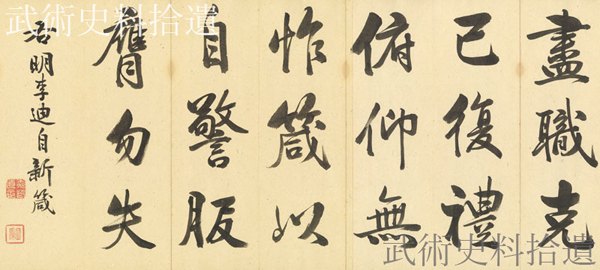 武術史料拾遺
盡職克
己復禮
俯仰無
怍箴以
自警服
膺勿失
右明李迪自新箴
武術史料拾遺